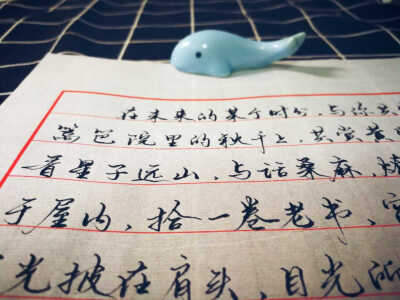 在未来的某个时分,与你共
篱笆院里的秋千上,共赏黄昏
看星子远山,与话桑麻,烧
于屋内,拾一卷老书,
光披在肩头,目光所